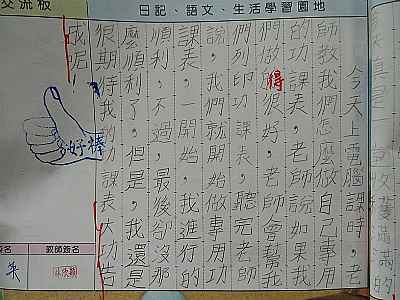 交流板
日記、語文、生活學習園地
今天上電腦課時，老
師教我們怎麼做自己專用
的功課表，老師說如果我
們做得很好，老師會幫我
們列印功課表，聽完老師
說，我們就開始做專用功
課表，一開始，我進行的
順利，不過，最後卻沒那
麼順利了，但是，我還是
很期待我的功課表大功告
成呢！
好棒
簽名
教師簽名